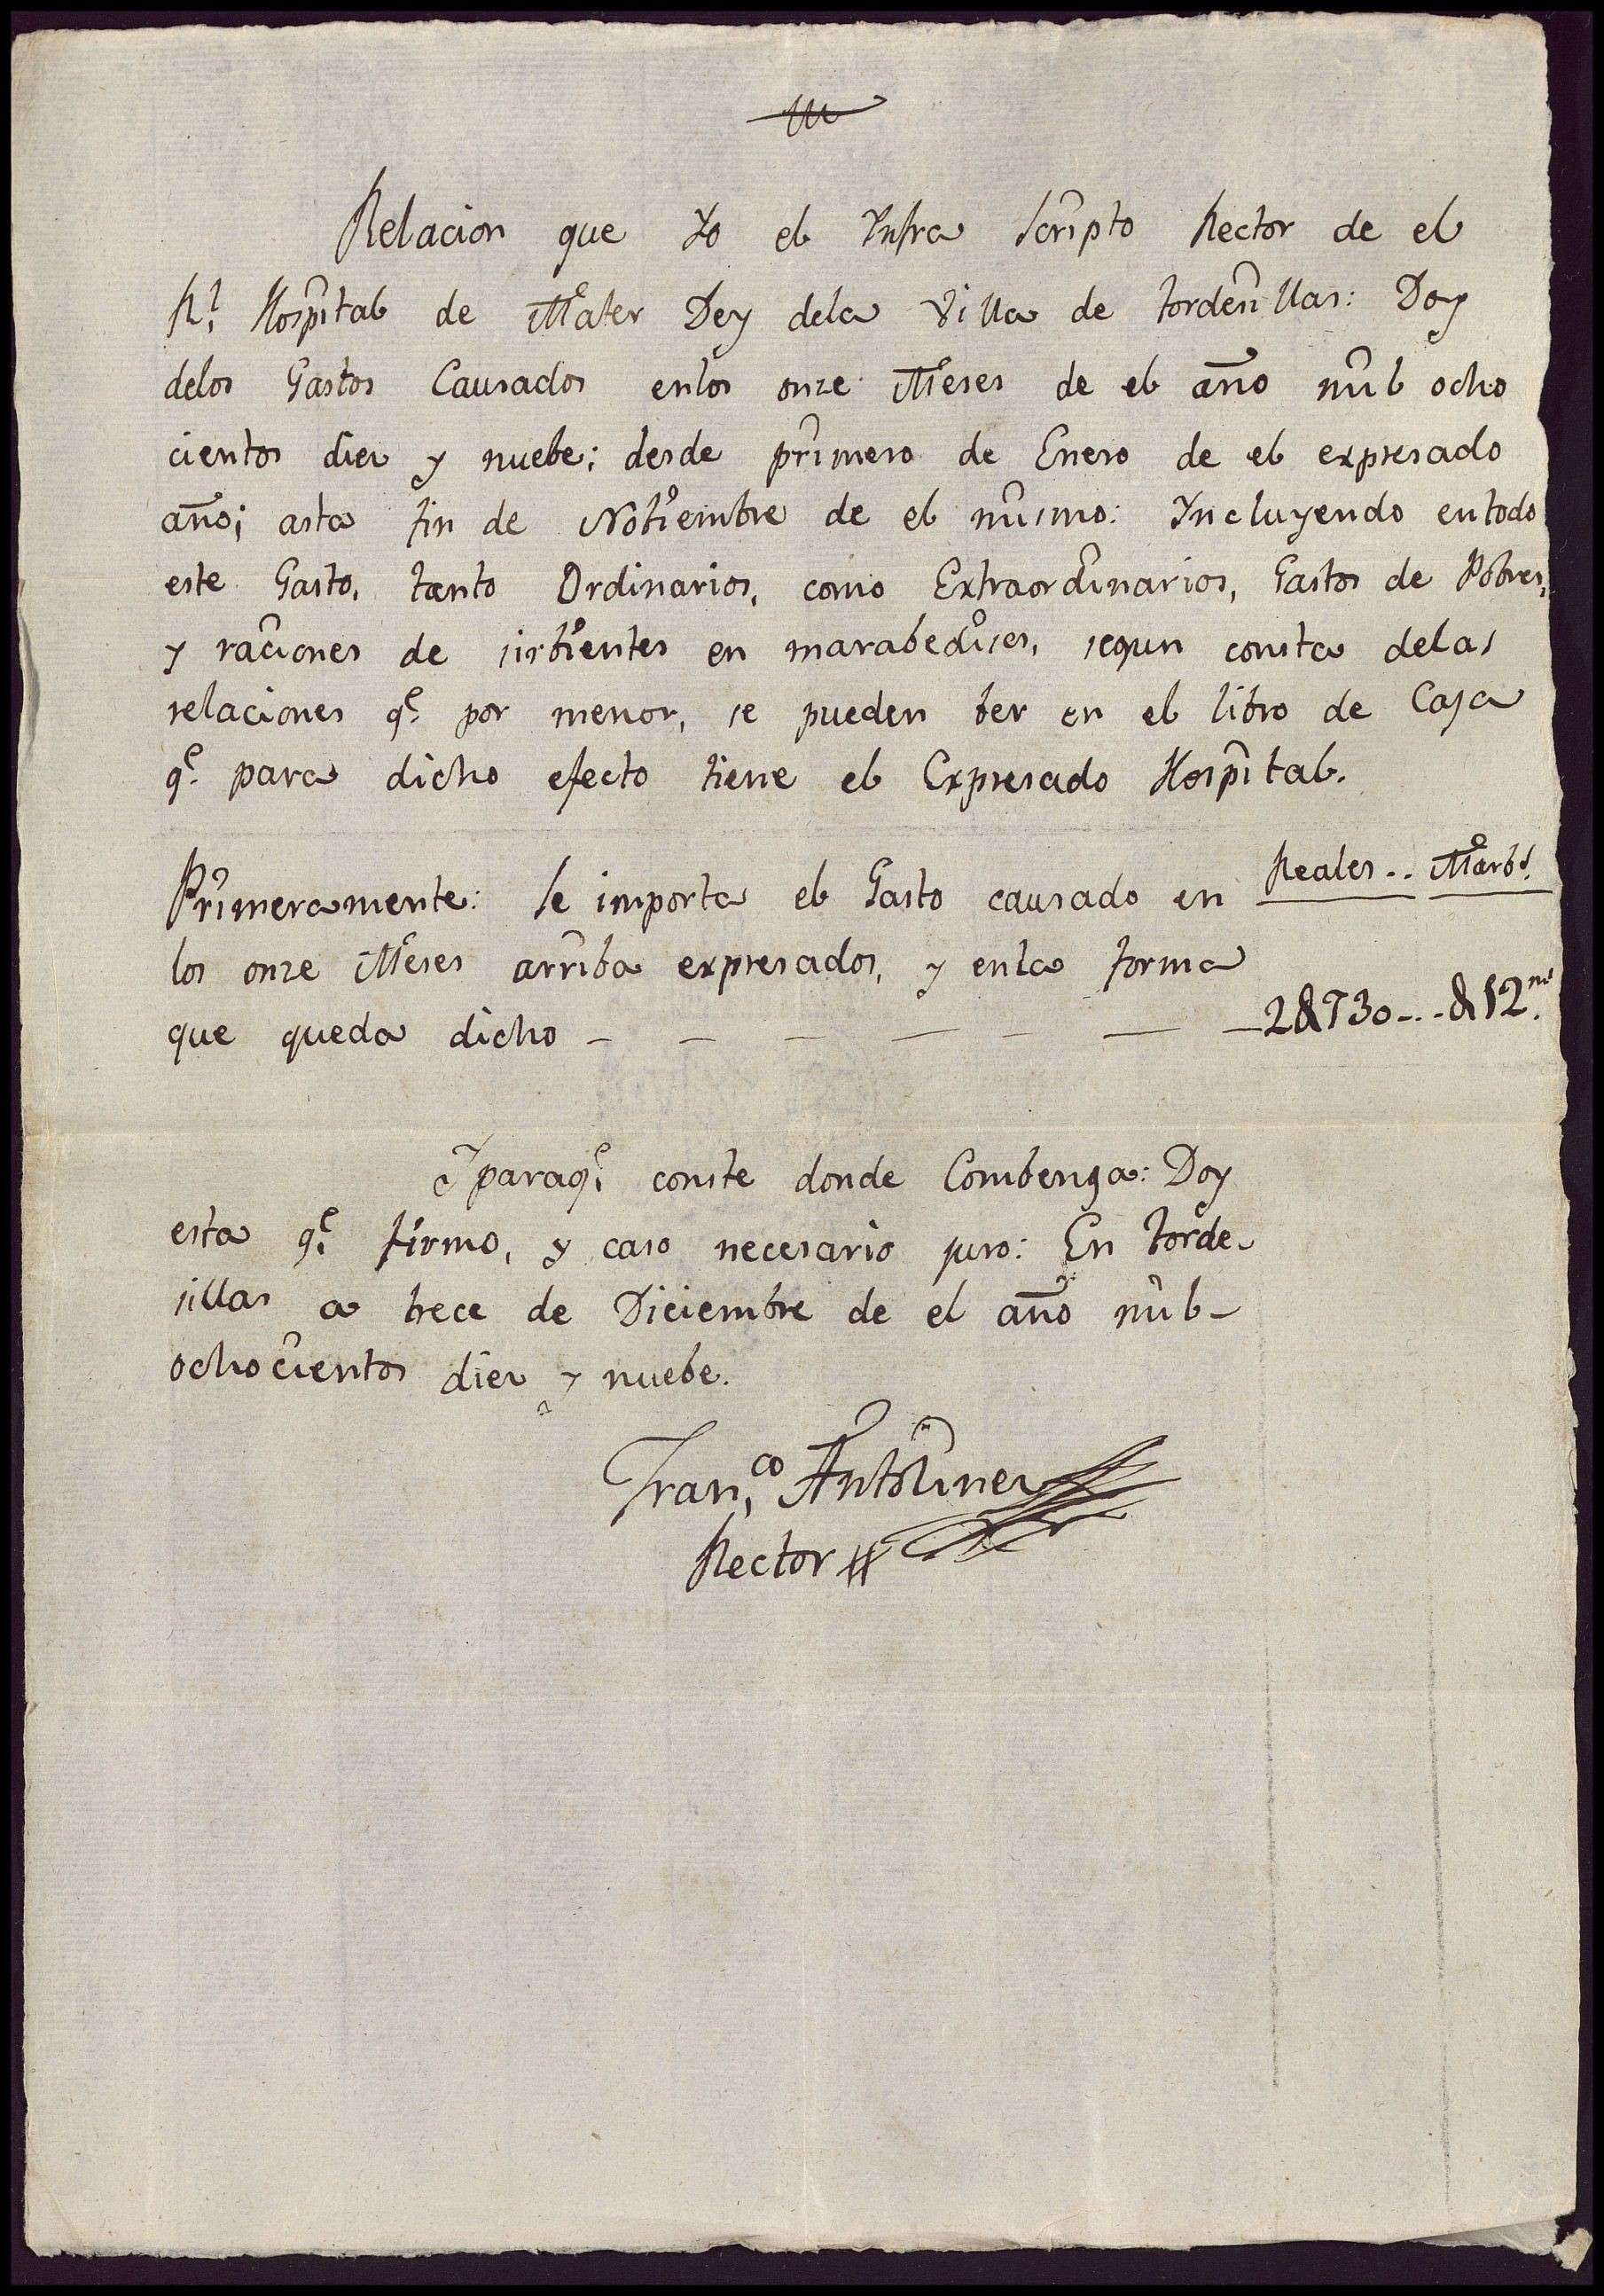 Relacion que Yo el Ynfra scripto Rector de el
Rl. Hospital de Mater Dey dela Villa de tordesillas: Doy
delos Gastos Causados enlos onze Meses de el año mil ocho
cientos diez y nuebe; desde primero de Enero de el expresado
año; asta fin de Nobiembre de el mismo: Yncluyendo entodo
este Gasto, tanto Ordinarios, como Extraordinarios, Gastos de Pobres,
y raciones de sirbientes en marabedises, segun consta delas
relaciones qe. por menor, se pueden ber en el libro de Casa
qe. para dicho efecto tiene el Expresado Hospital.
Reales .. Marbs.
Primeramente: se importa el Gasto causado en
los onze Meses arriba expresados, y enla forma
que queda dicho - - - - - - - 2&730 - .. - &12ms.
Y paraqe. conste donde Combenga: Doy
esta qe. firmo, y caso necesario juro: En torde-
sillas a trece de Diciembre de el año mil-
ochocientos diez y nuebe.
Franco. Antolinez
Rector